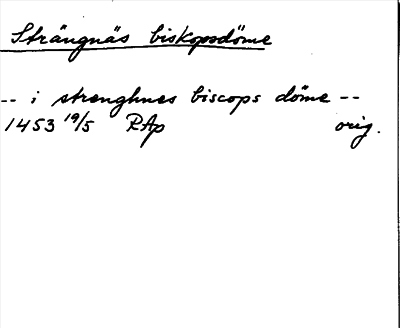 Strängnäs biskopsdöme
-- i strenghnes biscops döme --
1453 19/5 RAp orig.